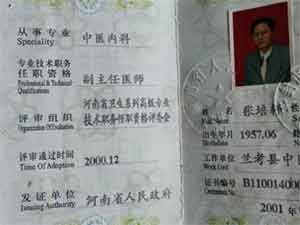 从事专业 中医内科
Speciality
专业技术职务
任职资格 副主任医师
Professional & Technical
Qualifications
河南省卫生系列高级专业
评审组织 技术职务任职资格评委会
Organization Of Evaluation
评审通过时间 2000.12
Time Of Adoption
发证单位 河南省人民政府
Issuing Authority
张培
出生年月 1957.06
工作单位 兰考县中
证书编号 B1100140
2001年